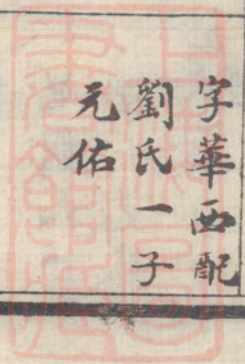 字華西配
劉氏一子
元佑